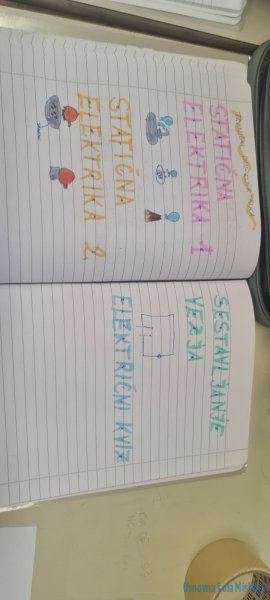 STATIČNA
ELEKTRIKA 1
STATIČNA
ELEKTRIKA 2
SESTAVLJANJE
VEZJA
ELEKTRIČNI KVIZ